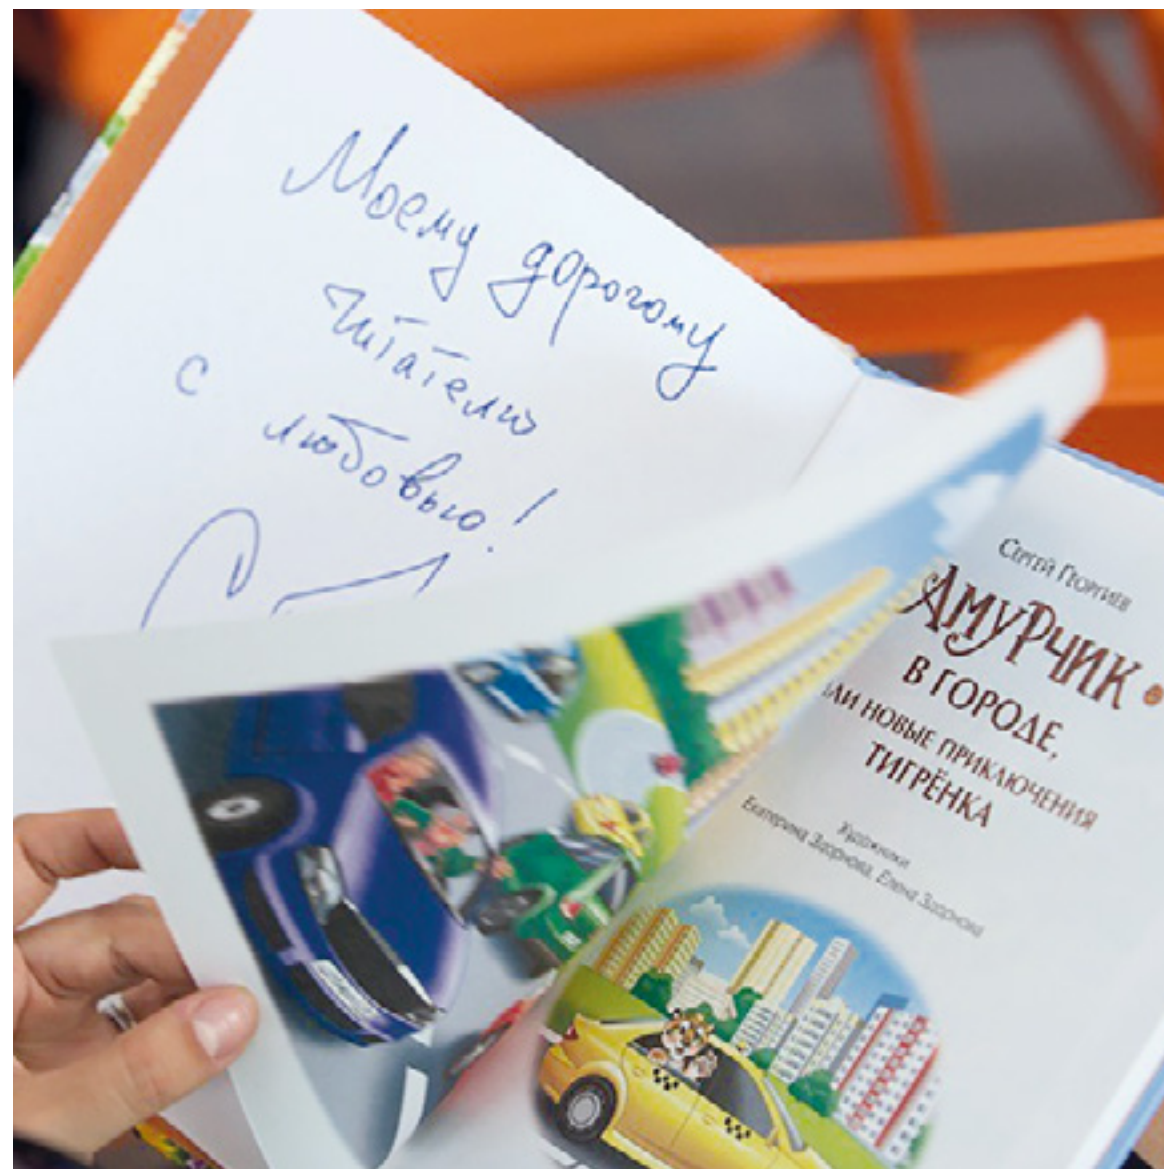 Моему дорогому
читателю
с любовью!
Сергей Георгиев
Амурчик
в городе,
или новые приключения
тигрёнка
Художники
Екатерина Здорнова, Елена Здорнова